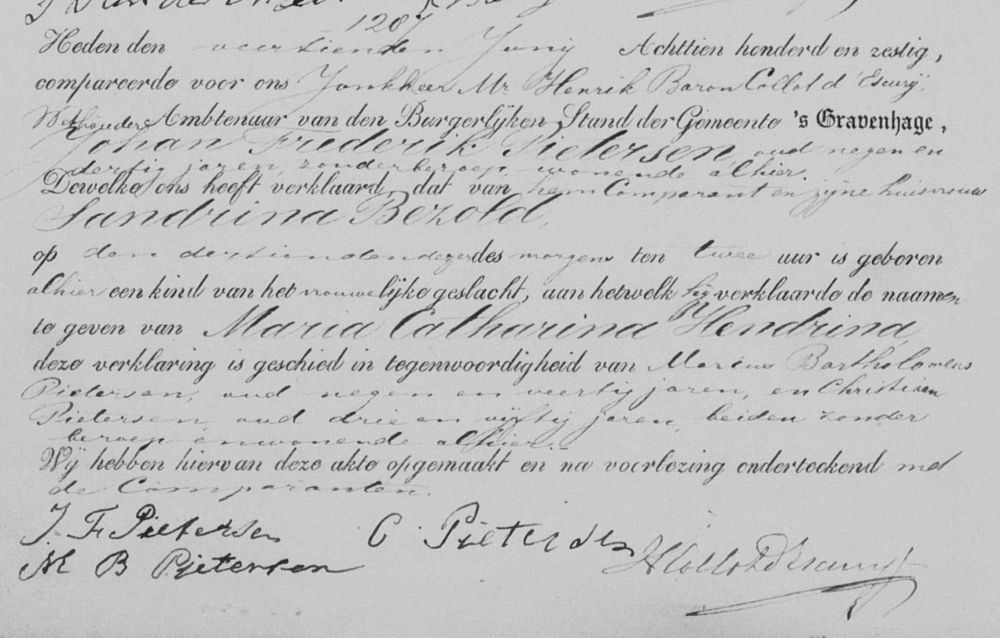 1207
Heden den veertienden Junij Achttien honderd en zestig,
compareerde voor ons Jonkheer Mr Henrik Baron Collot d'Escurij
Wethouder, Ambtenaar van den Burgerlijken Stand der Gemeente 's Gravenhage,
Johan Frederik Pietersen, oud negen en
dertig jaren, zonder beroep, wonende alhier.
Dewelke ons heeft verklaard, dat van hem Comparant en zijne huisvrouw
Sandrina Bezold,
op den dertienden dezer des morgens ten twee uur is geboren
alhier een kind van het vrouwelijke geslacht, aan hetwelk hij verklaarde de naamen
te geven van Maria Catharina Hendrina,
deze verklaring is geschied in tegenwoordigheid van Marius Bartholomeus
Pietersen, oud negen en veertig jaren, en Christiaan
Pietersen, oud drie en vijftig jaren, beiden zonder
beroep en wonende alhier.
Wij hebben hiervan deze akte opgemaakt en na voorlezing onderteekend met
de Comparanten.
J. F. Pietersen C Pietersen
M B Pietersen HCollotdEscury